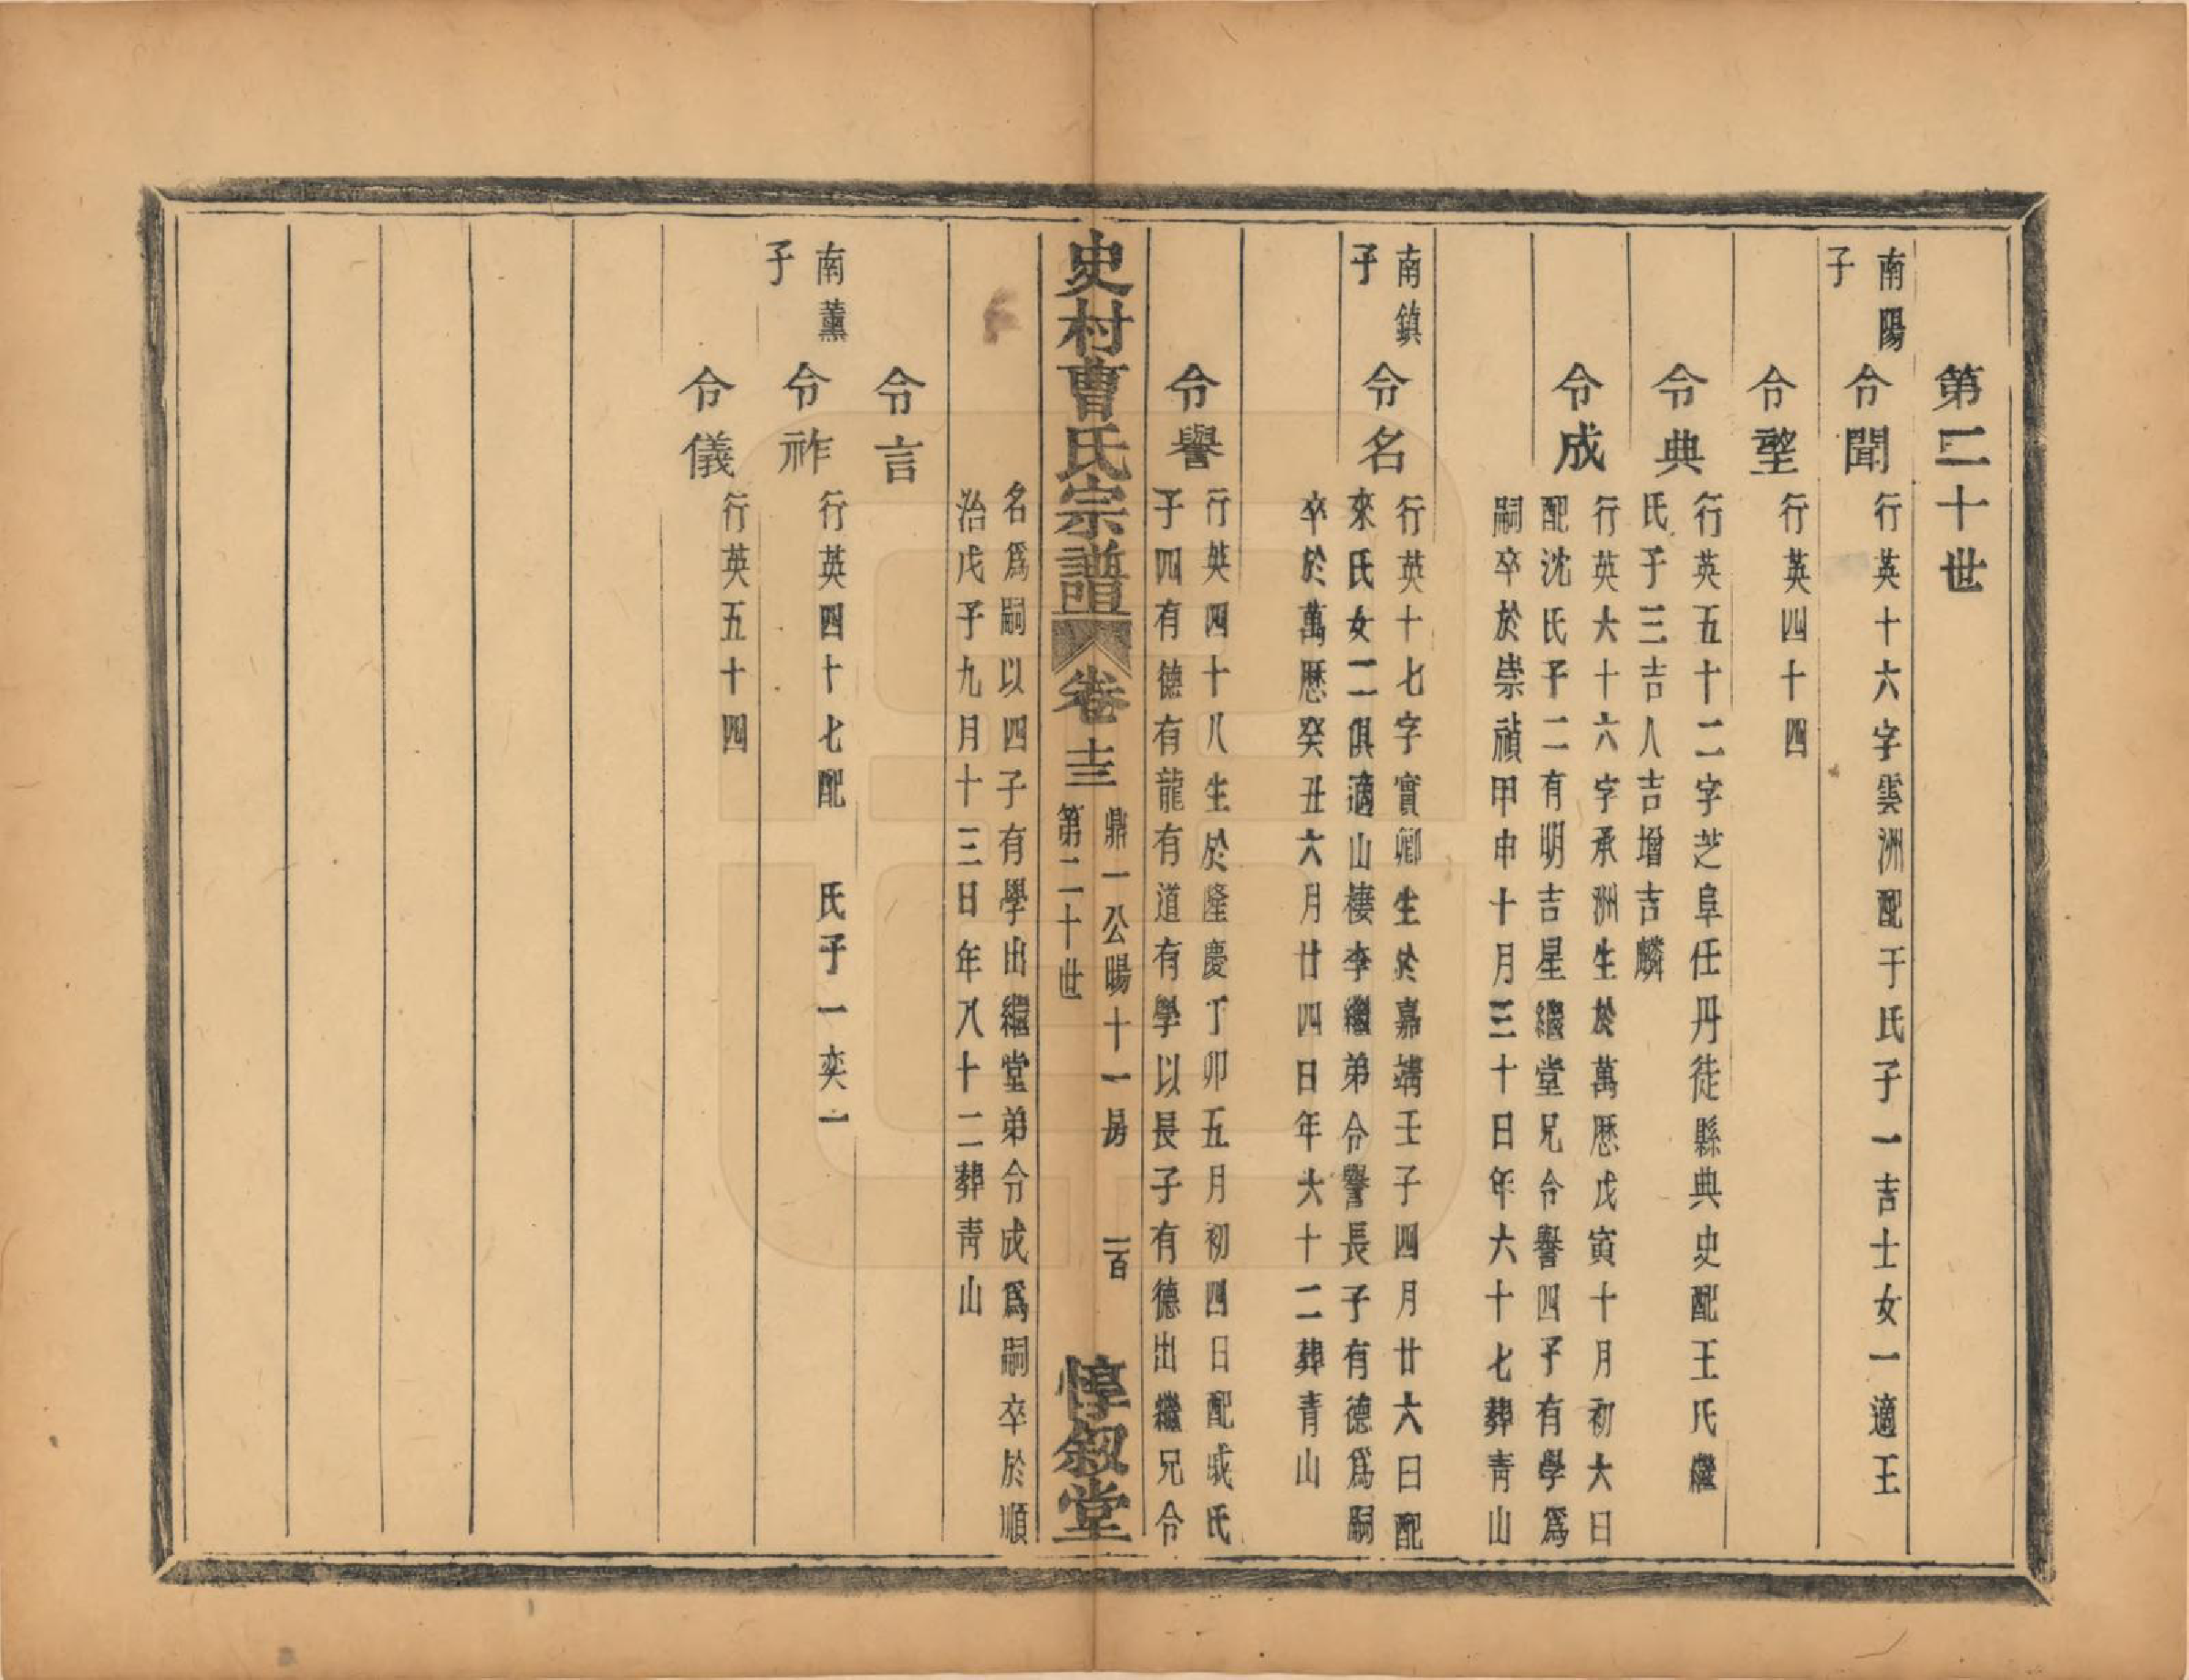 第二十世
南陽
子
令聞
行英十六字雲洲配于氏子一吉士女一適王
令望
行英四十四
令典
行英五十二字芝阜任丹徒縣典史配王氏繼
氏子三吉人吉增吉麟
令成
行英六十六字承洲生於萬歷戊寅十月初六日
配沈氏子二有明吉星繼堂兄令譽四子有學爲
嗣卒於崇禎甲申十月三十日年六十七葬青山
南鎮
子
令名
行英十七字實卿生於嘉靖壬子四月廿六日配
來氏女二俱適山棲李繼弟令譽長子有德爲嗣
卒於萬歷癸丑六月廿四日年六十二葬青山
令譽
行英四十八生於隆慶丁卯五月初四日配戚氏
子四有德有龍有道有學以長子有德出繼兄令
史村曹氏宗譜
卷十三
鼎一公暘十一房
第二十世
一百
惇叙堂
名爲嗣以四子有學出繼堂弟令成爲嗣卒於順
治戊子九月十三日年八十二葬青山
令言
南薰
子
令祚
行英四十七配 氏子一奕一
令儀
行英五十四